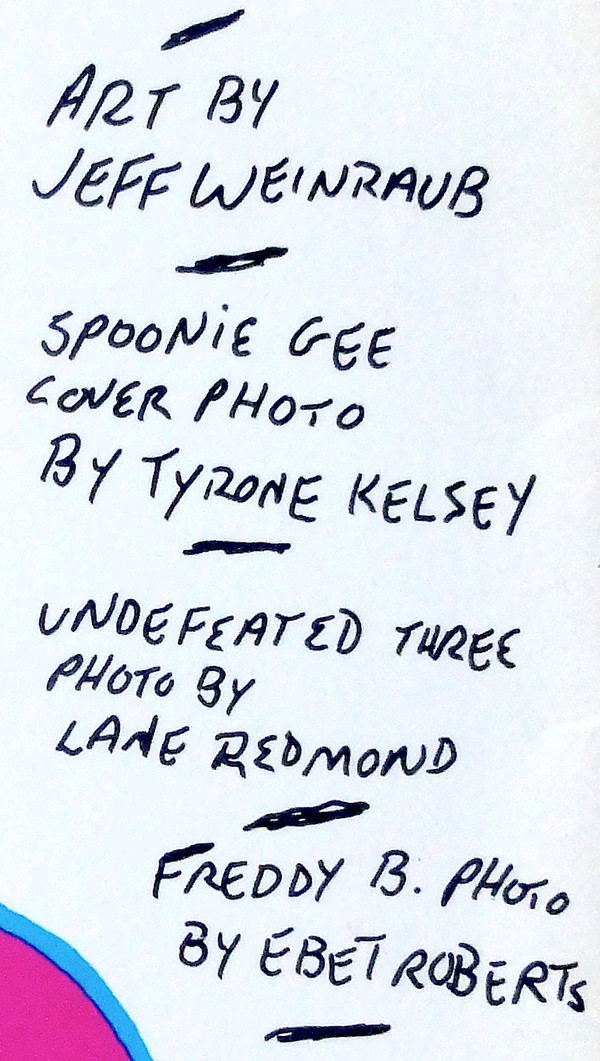 ART BY
JEFF WEINRAUB
SPOONiE GEE
COVER PHOTO
BY TYRONE KELSEY
UNDEFEATED THREE
PHOTO BY
LANE REDMOND
FREDDY B. PHOTO
BY EBET ROBERTS